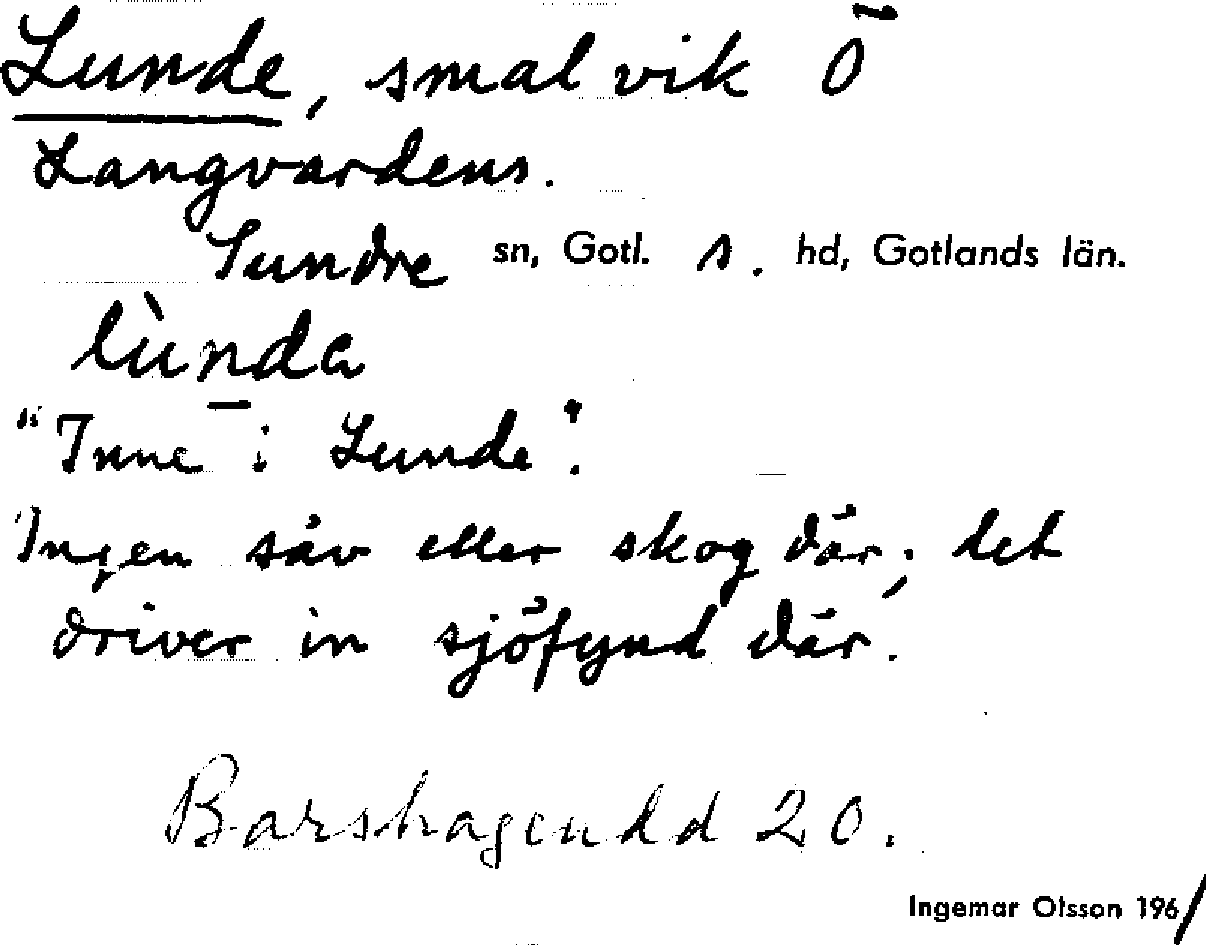 Lunde, smal vik Ö
Langvardens.
Sundre sn, Gotl. s. hd, Gotlands län.
lùnda
"Inne i Lunde".
Ingen säv eller skog där; det
driver in sjöfynd där.
Barshageudd 20.
Ingemar Olsson 1961